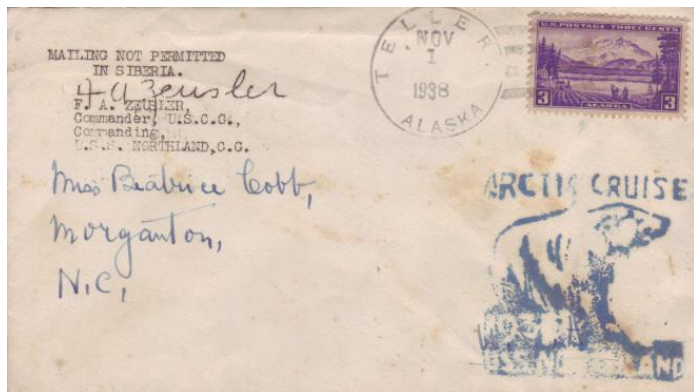 MAILING NOT PERMITTED
IN SIBERIA.
F. A. Zeusler
F. A. ZEUSLER,
Commander, U.S.C.G.,
Commanding,
U.S.S. NORTHLAND,C.G.
TELLER
NOV
1
1938
ALASKA
U.S. POSTAGE THREE CENTS
3 3
ALASKA
Miss Beatrice Cobb,
Morganton,
N.C.,
ARCTIC CRUISE
USS NORTHLAND